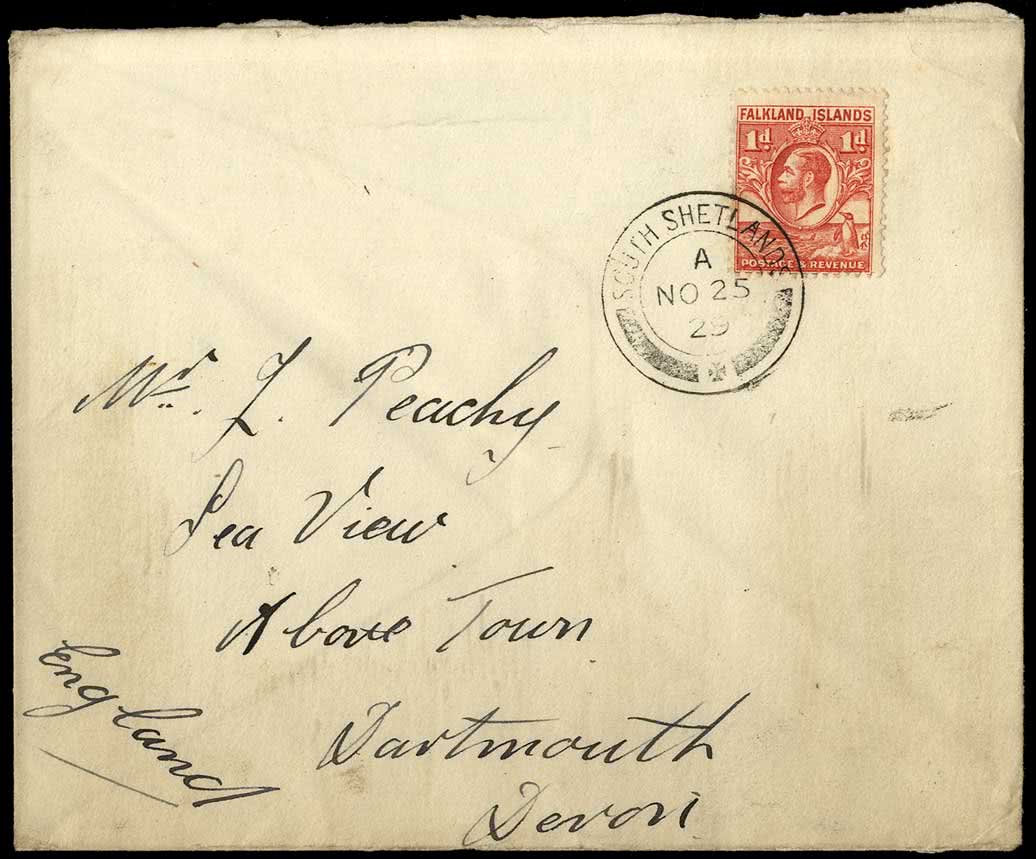 FALKLAND ISLANDS
1d 1d
POSTAGE & REVENUE
SOUTH SHETLANDS
A
NO 25
29
Mr. J. Peachy
Sea View
Above Town
Dartmouth
Devon
England